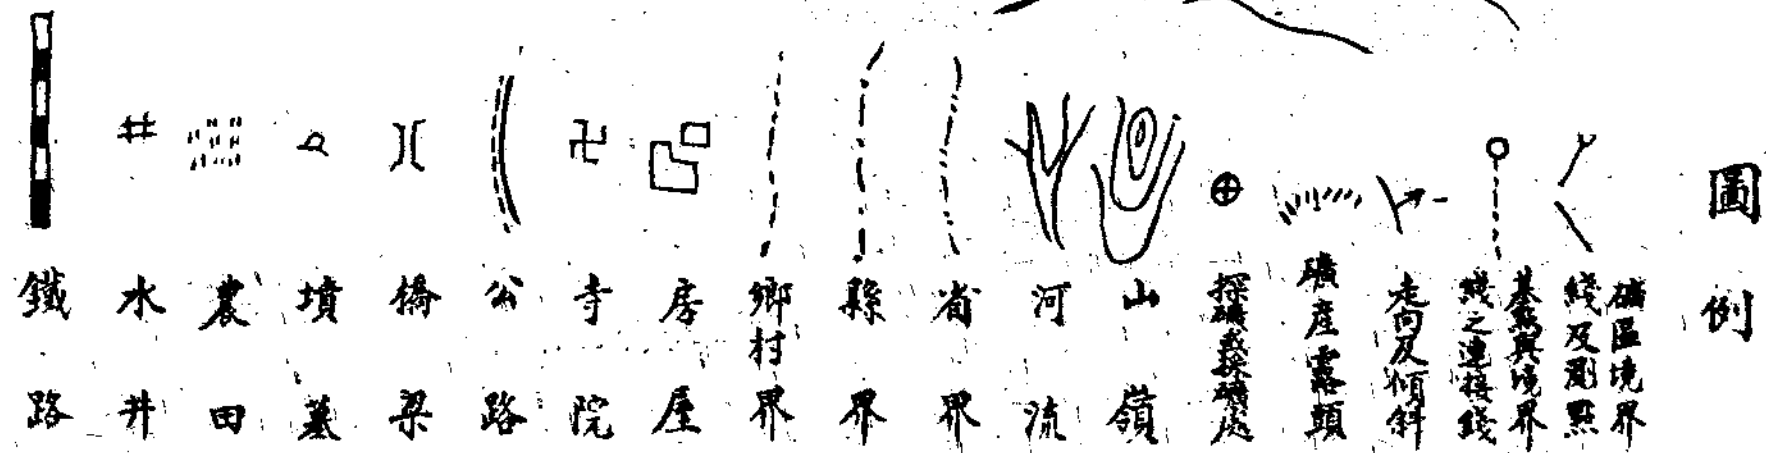 圖例
礦區境界
綫及測點
基點與境界
綫之連接綫
走向及傾斜
礦產露頭
探礦或採礦處
山嶺
河流
省界
縣界
鄉村界
房屋
寺院
公路
橋梁
墳墓
農田
水井
鐵路